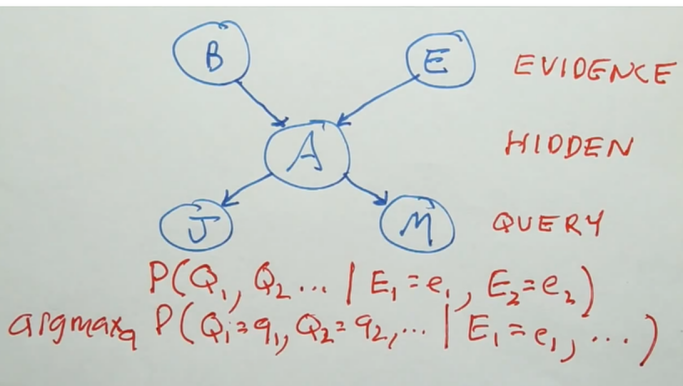 B E EVIDENCE
A HIDDEN
J M QUERY
P(Q₁, Q₂ ... | E₁=e₁, E₂=e₂)
argmax_q P(Q₁=q₁, Q₂=q₂, ... | E₁=e₁, ...)